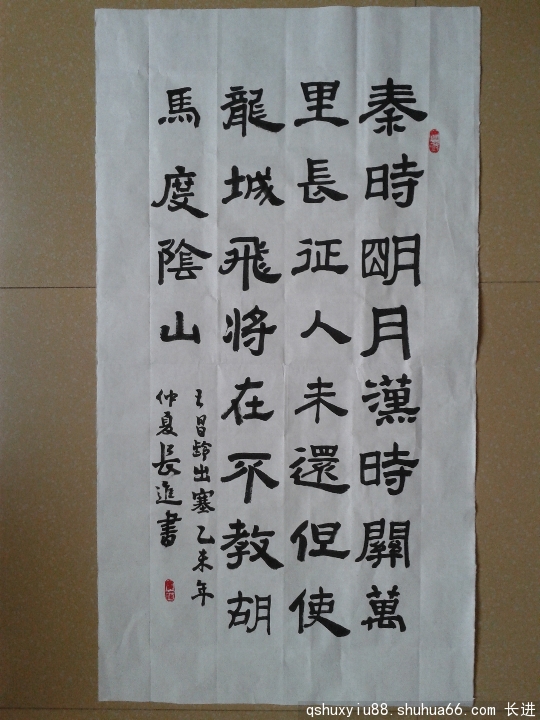 秦時明月漢時關萬
里長征人未還但使
龍城飛将在不教胡
馬度陰山
王昌龄出塞乙未年
仲夏長進書
qshuxyiu88.shuhua66.com 长进